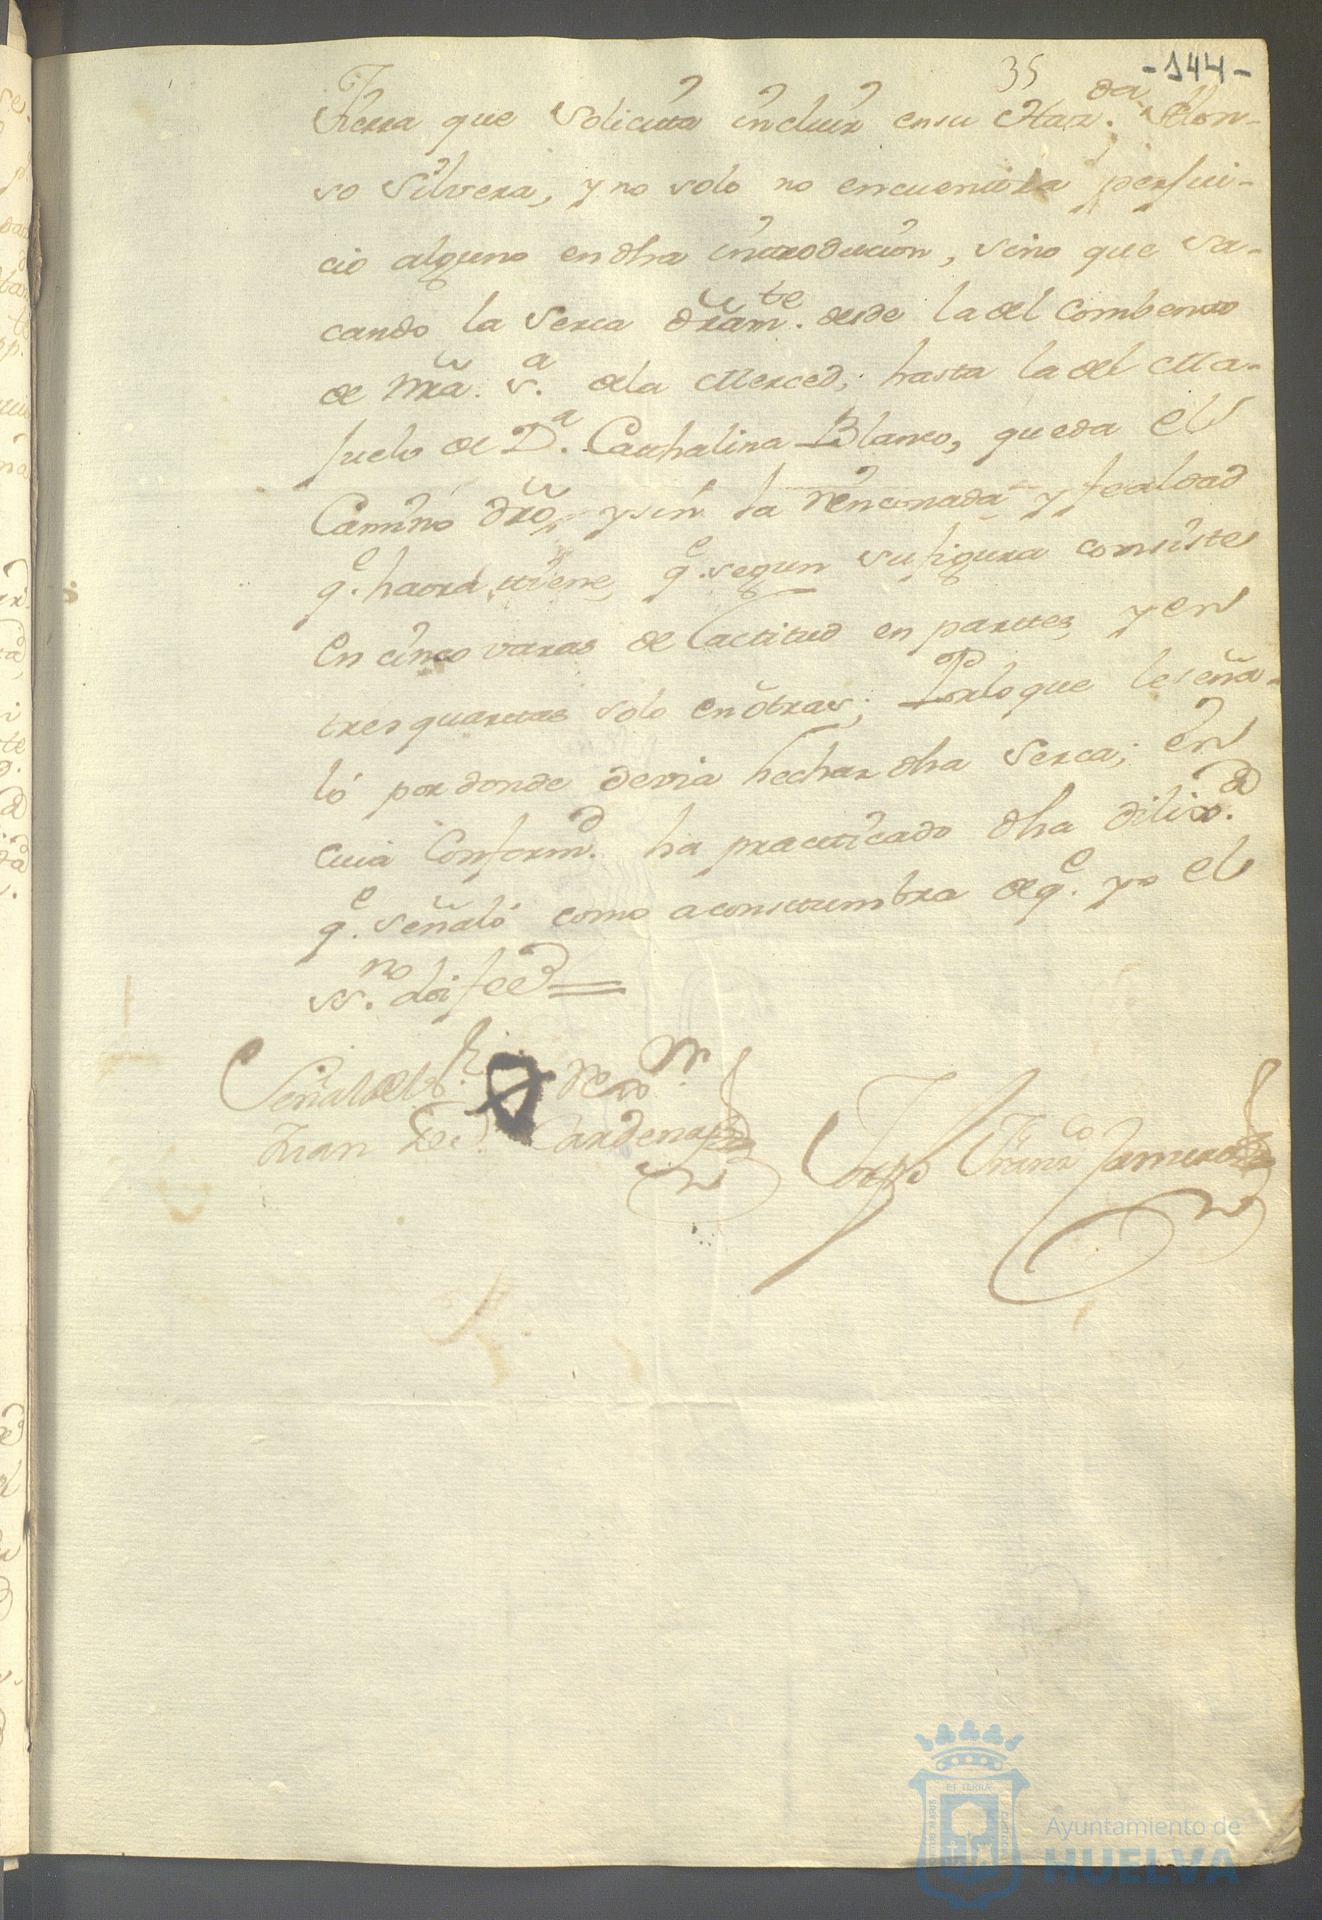 35 -144-
tierra que Solicita incluir en su Haz.da Alon-
so Silvera, y no solo no encuentra perjui-
cio alguno en dha introducion, sino que sa-
cando la Serca dram.te desde la del Combento
de Nra. S.a de la Merced, hasta la del Ma-
juelo de D.a Cathalina Blanco, queda el
Camino dro, y sin la rinconada y fealdad
q.e haora tiene, q.e segun su figura consiste
en cinco varas de Lactitud en partes, y en
tres quartas solo en otras; Por lo que le seña-
ló por donde devia hechar dha Serca; en
cuia Conform.d ha practicado dha dilix.a
q.e señaló como acostumbra de q.e yo el
ss.no doi fee
Señal del
Juan de Cardenas
Fran.co
Ayuntamiento de
HUELVA